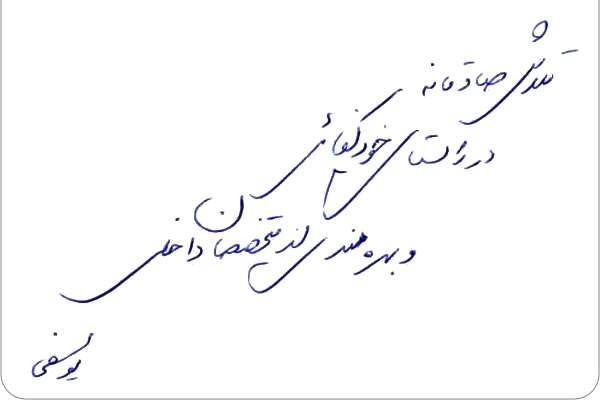 تلاش صادقانه
در راستای خودکفائی
و بهره مندی از متخصصان داخلی
یوسفی